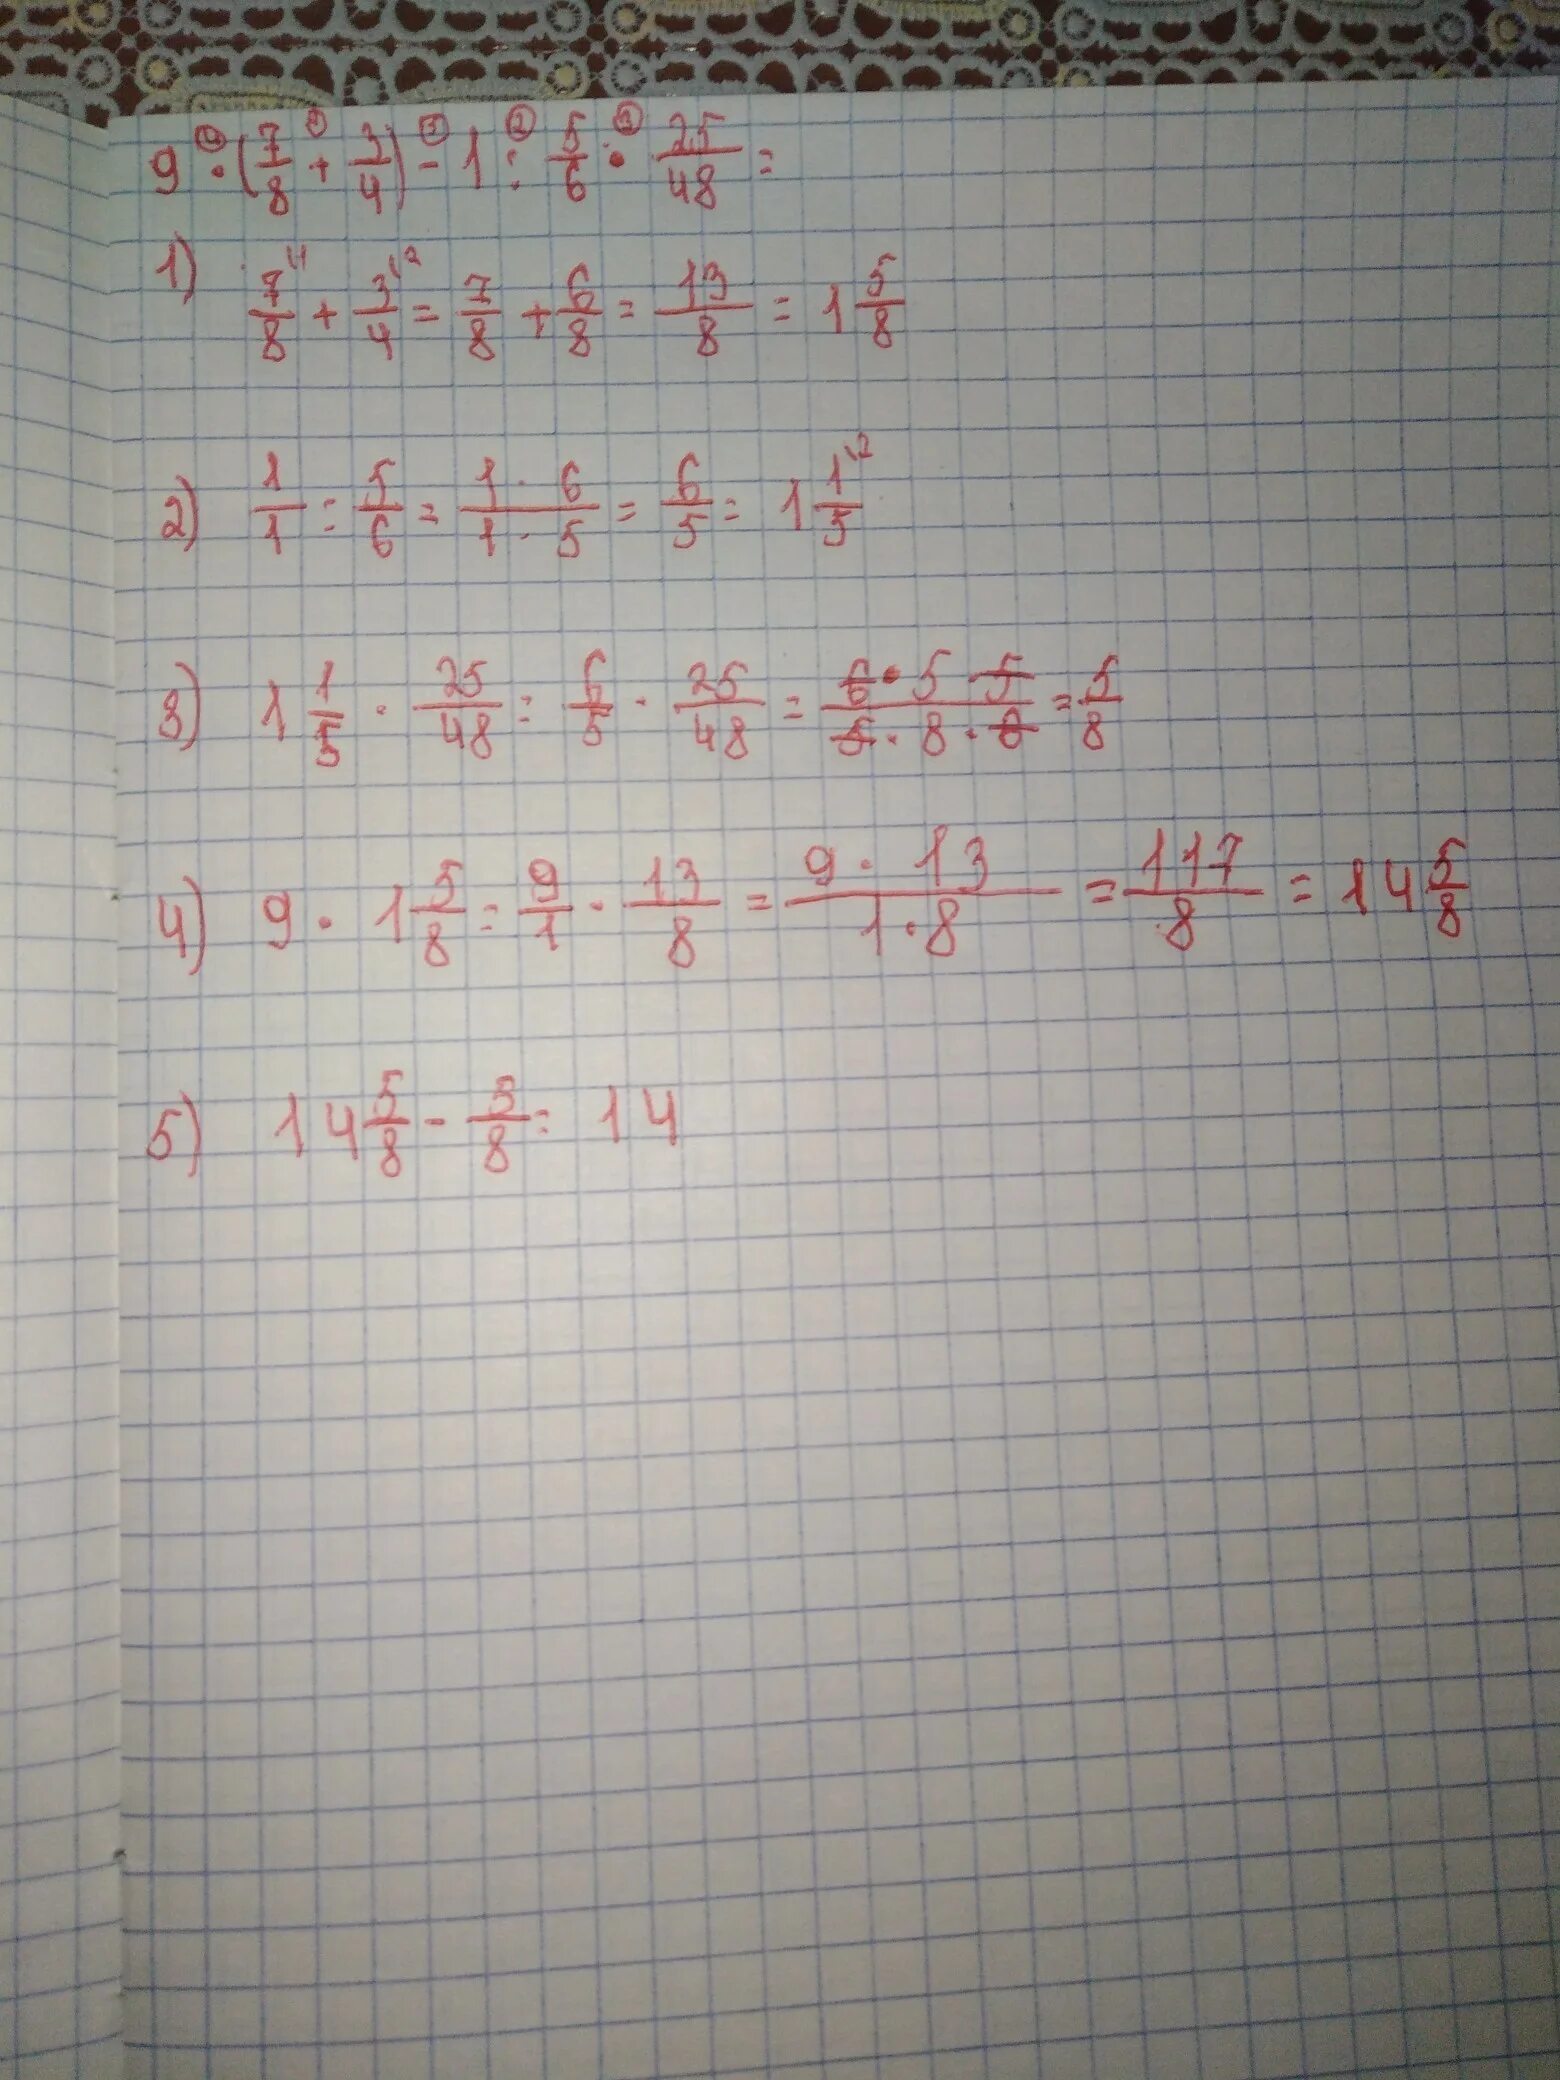 9 ④· (7/8 ①+ 3/4) ⑤- 1 ②: 5/6 ③· 25/48 =
1) 7/8 \1 + 3/4 \2 = 7/8 + 6/8 = 13/8 = 1 5/8
2) 1/1 : 5/6 = 1 · 6/1 · 5 = 6/5 = 1 1/5 \2
3) 1 1/5 · 25/48 = 6/5 · 25/48 = 6 · 5 · 5/5 · 8 · 6 = 5/8
4) 9 · 1 5/8 = 9/1 · 13/8 = 9 · 13/1 · 8 = 117/8 = 14 5/8
5) 14 5/8 - 5/8 = 14